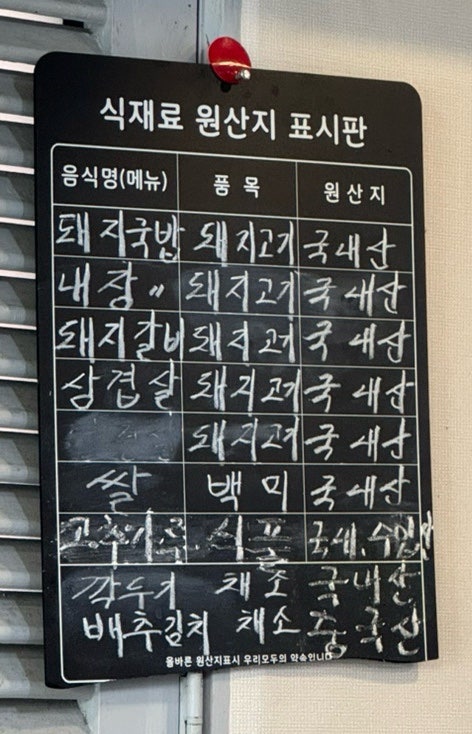 식재료 원산지 표시판
음식명(메뉴) 품목 원산지
돼지국밥 돼지고기 국내산
내장 〃 돼지고기 국내산
돼지갈비 돼지고기 국내산
삼겹살 돼지고기 국내산
돼지고기 국내산
쌀 백미 국내산
고추가루 식품 국내, 수입산
깍두기 채소 국내산
배추김치 채소 중국산
올바른 원산지표시 우리모두의 약속입니다